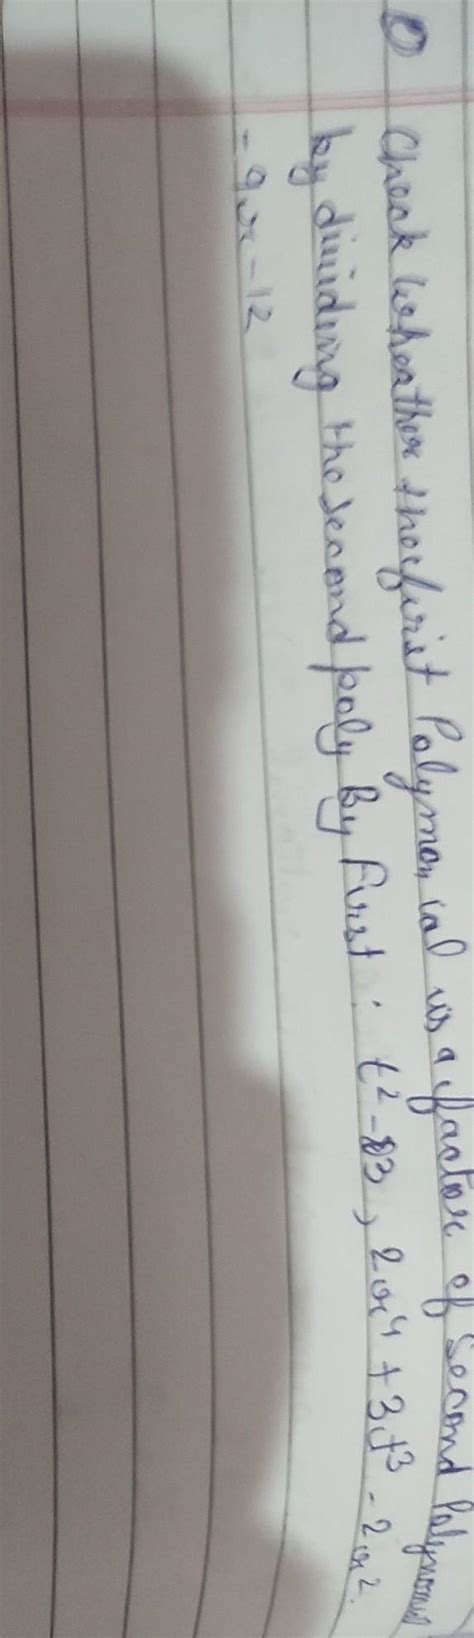 Check wheather the first Polymonial is a factor of Second Polynomial
by dividing the second poly By first : t² - 3 , 2x⁴ + 3t³ - 2x²
- 9x - 12